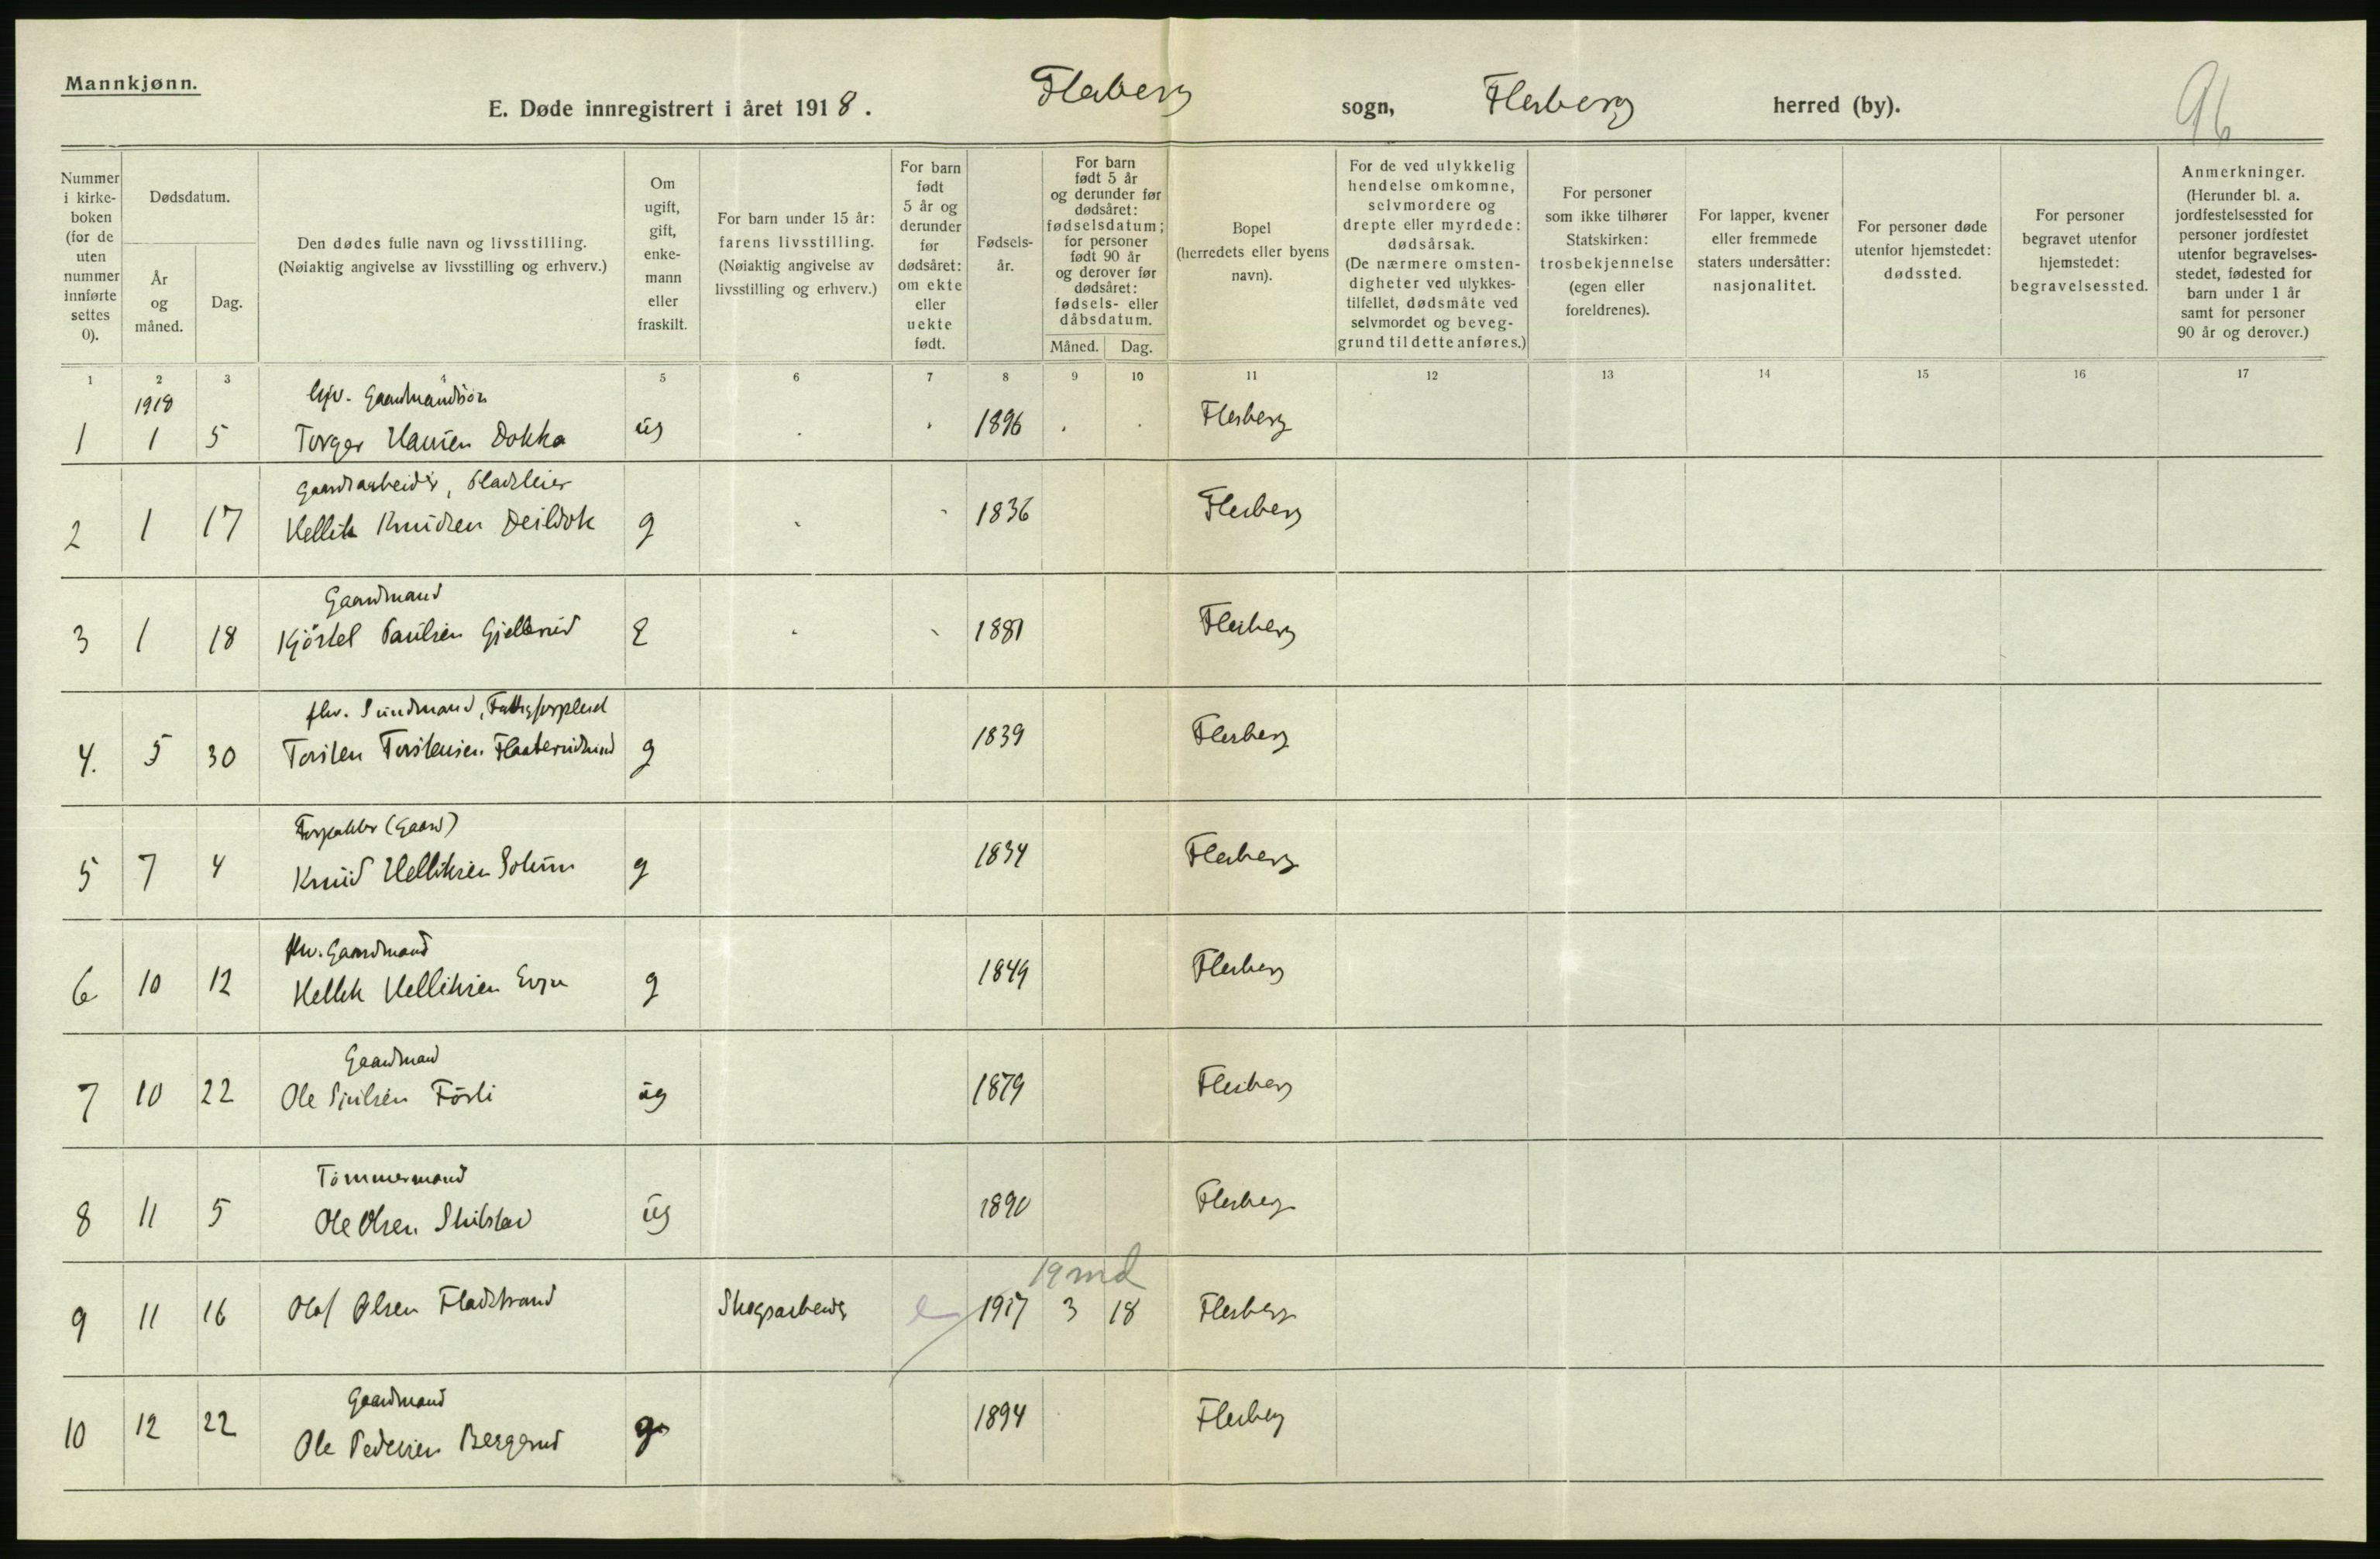 Mannkjønn.
E. Døde innregistrert i året 1918. Flesberg sogn, Flesberg herred (by).
96
Nummer i kirkeboken (for de uten nummer innførte settes 0).
Dødsdatum.
År og måned.
Dag.
Den dødes fulle navn og livsstilling. (Nøiaktig angivelse av livsstilling og erhverv.)
Om ugift, gift, enkemann eller fraskilt.
For barn under 15 år: farens livsstilling. (Nøiaktig angivelse av livsstilling og erhverv.)
For barn født 5 år og derunder før dødsåret: om ekte eller uekte født.
Fødselsår.
For barn født 5 år og derunder før dødsåret: fødselsdatum; for personer født 90 år og derover før dødsåret: fødsels- eller dåbsdatum.
Måned. Dag.
Bopel (herredets eller byens navn).
For de ved ulykkelig hendelse omkomne, selvmordere og drepte eller myrdede: dødsårsak. (De nærmere omstendigheter ved ulykkestilfellet, dødsmåte ved selvmordet og beveggrund til dette anføres.)
For personer som ikke tilhører Statskirken: trosbekjennelse (egen eller foreldrenes).
For lapper, kvener eller fremmede staters undersåtter: nasjonalitet.
For personer døde utenfor hjemstedet: dødssted.
For personer begravet utenfor hjemstedet: begravelsessted.
Anmerkninger. (Herunder bl. a. jordfestelsessted for personer jordfestet utenfor begravelsesstedet, fødested for barn under 1 år samt for personer 90 år og derover.)
1 2 3 4 5 6 7 8 9 10 11 12 13 14 15 16 17
1918 Gaardmandsøn
1 1 5 Torger Hansen Dokka ug 1896 Flesberg
Gaardsarbeider, Pladseier
2 1 17 Hellik Knudsen Deildok g 1836 Flesberg
Gaardmand
3 1 18 Kjøstel Paulsen Gjellerud E 1881 Flesberg
fhv. Sundmand,
4. 5 30 Torsten Torstensen g 1839 Flesberg
(Gaard)
5 7 4 Knud Helliksen Solum g 1834 Flesberg
fhv. Gaardmand
6 10 12 Hellik Helliksen Evju g 1849 Flesberg
Gaardmand
7 10 22 Ole Sjulsen Førli ug 1879 Flesberg
Tømmermand
8 11 5 Ole Olsen ug 1890 Flesberg
19 md
9 11 16 Olaf Olsen Fladstrand Skogsarbeider e 1917 3 18 Flesberg
Gaardmand
10 12 22 Ole Pedersen Bergerud g 1894 Flesberg